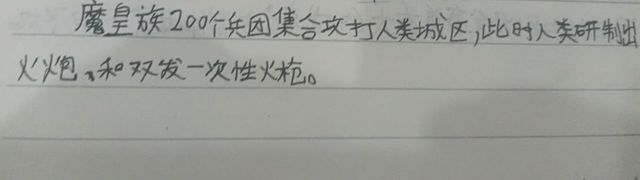 魔皇族200个兵团集合攻打人类城区,此时人类研制出
火炮、和双发一次性火枪。